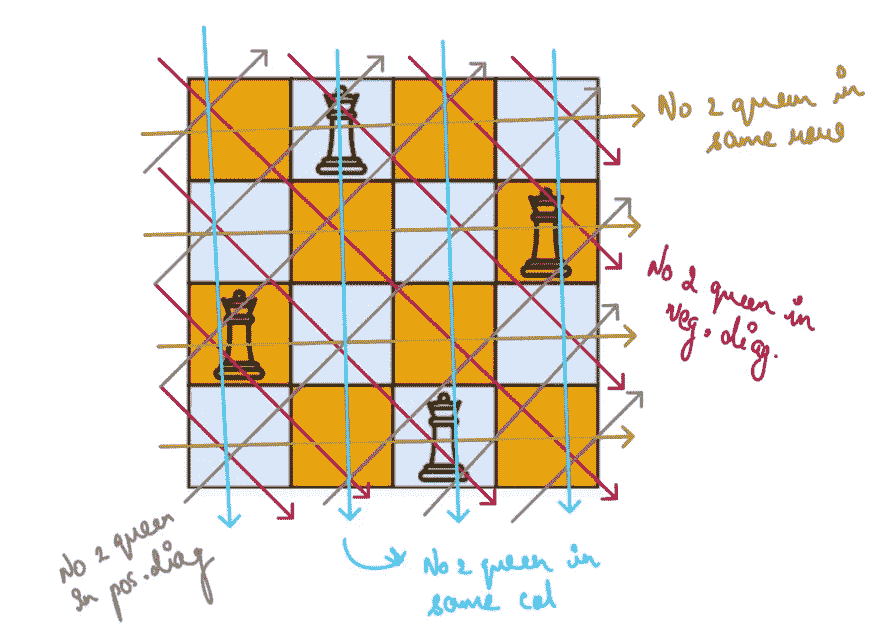 No 2 queen in
same row
No 2 queen in
neg. diag.
No 2 queen
in pos. diag
No 2 queen in
same col